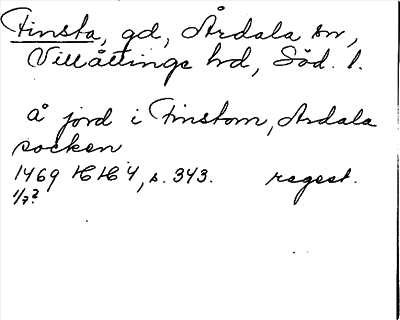 Finsta, gd, Årdala sn,
Villåttinge hd, Söd. l.
å jord i Finstom, Ardala
socken
1469 HH 4, s. 343. regest.
1/7?